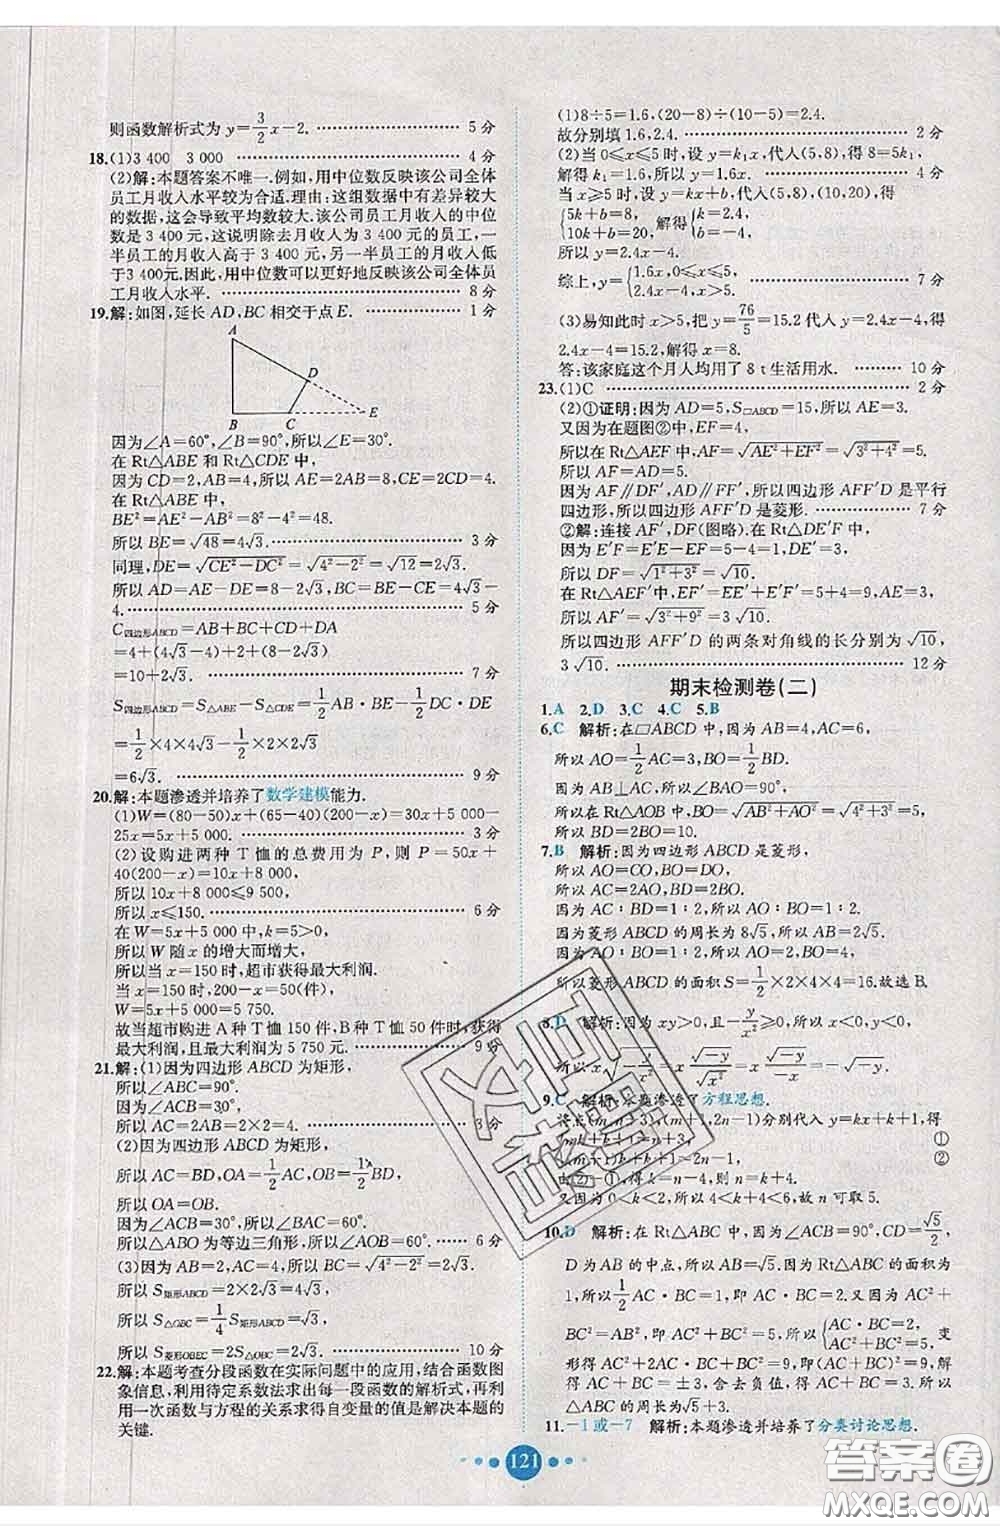 则函数解析式为 y=3/2x−2. ……………… 5 分
18.(1)3 400　3 000 ……………… 4 分
(2)解:本题答案不唯一.例如,用中位数反映该公司全体
员工月收入水平较为合适.理由:这组数据中有差异较大
的数据,这会导致平均数较大.该公司员工月收入的中位
数是 3 400 元,这说明除去月收入为 3 400 元的员工,一
半员工的月收入高于 3 400 元,另一半员工的月收入低
于 3 400元.因此,用中位数可以更好地反映该公司全体员
工月收入水平. ……………… 8 分
19.解:如图,延长 AD,BC 相交于点 E. ……… 1 分
A
D
B C E
因为∠A=60°,∠B=90°,所以∠E=30°.
在 Rt△ABE 和 Rt△CDE 中,
因为 CD=2,AB=4,所以 AE=2AB=8,CE=2CD=4.
在 Rt△ABE 中,
BE²=AE²−AB²=8²−4²=48.
所以 BE=√48=4√3. ……………… 3 分
同理,DE=√(CE²−DC²)=√(4²−2²)=√12=2√3.
所以 AD=AE−DE=8−2√3,BC=BE−CE=4√3−
4. ……………… 5 分
C四边形ABCD=AB+BC+CD+DA
=4+(4√3−4)+2+(8−2√3)
=10+2√3. ……………… 7 分
S四边形ABCD=S△ABE−S△CDE=1/2AB·BE−1/2DC·DE
=1/2×4×4√3−1/2×2×2√3
=6√3. ……………… 9 分
20.解:本题渗透并培养了数学建模能力.
(1)W=(80−50)x+(65−40)(200−x)=30x+5 000−
25x=5x+5 000. ……………… 3 分
(2)设购进两种 T 恤的总费用为 P,则 P=50x+
40(200−x)=10x+8 000.
所以 10x+8 000≤9 500.
所以 x≤150. ……………… 6 分
在 W=5x+5 000 中,k=5>0,
所以 W 随 x 的增大而增大,
所以当 x=150 时,超市获得最大利润.
当 x=150 时,200−x=50(件),
W=5x+5 000=5 750.
故当超市购进 A 种 T 恤 150 件,B种 T恤 50件时,获得
最大利润,且最大利润为 5 750 元. ……… 9 分
21.解:(1)因为四边形 ABCD 为矩形,
所以∠ABC=90°.
因为∠ACB=30°,
所以 AC=2AB=2×2=4. ……………… 3 分
(2)因为四边形 ABCD 为矩形,
所以 AC=BD,OA=1/2AC,OB=1/2BD,
所以 OA=OB.
因为∠ACB=30°,所以∠BAC=60°.
所以△ABO 为等边三角形,所以∠AOB=60°. … 6 分
(3)因为 AB=2,AC=4,所以 BC=√(4²−2²)=2√3.
所以 S矩形ABCD=2×2√3=4√3.
所以 S△OBC=1/4S矩形ABCD=√3.
所以 S菱形OBEC=2S△OBC=2√3. ……………… 10 分
22.解:本题考查分段函数在实际问题中的应用,结合函数图
象信息,利用待定系数法求出每一段函数的解析式,再利
用一次函数与方程的关系求得自变量的值是解决本题的
关键.
(1)8÷5=1.6,(20−8)÷(10−5)=2.4.
故分别填 1.6,2.4. ……………… 2 分
(2)当 0≤x≤5 时,设 y=k₁x,代入(5,8),得 8=5k₁,
解得 k₁=1.6,所以 y=1.6x. ……………… 4 分
当 x≥5 时,设 y=kx+b,代入(5,8),(10,20),得
{5k+b=8, 10k+b=20, 解得{k=2.4, b=−4.
所以 y=2.4x−4.
综上,y={1.6x,0≤x≤5, 2.4x−4,x>5. ……………… 7 分
(3)易知此时 x>5,把 y=76/5=15.2 代入 y=2.4x−4,得
2.4x−4=15.2,解得 x=8.
答:该家庭这个月人均用了 8 t 生活用水. ……… 10 分
23.(1)C ……………… 2 分
(2)①证明:因为 AD=5,S▱ABCD=15,所以 AE=3.
又因为在题图②中,EF=4,
所以在 Rt△AEF 中,AF=√(AE²+EF²)=√(3²+4²)=5.
所以 AF=AD=5.
因为 AF∥DF′,AD∥FF′,所以四边形 AFF′D 是平行
四边形,所以四边形 AFF′D 是菱形. ……… 7 分
②解:连接 AF′,DF(图略).在 Rt△DE′F 中,
因为 E′F=E′E−EF=5−4=1,DE′=3,
所以 DF=√(1²+3²)=√10.
在 Rt△AEF′中,EF′=EE′+E′F′=5+4=9,AE=3,
所以 AF′=√(3²+9²)=3√10.
所以四边形 AFF′D 的两条对角线的长分别为√10,
3√10. ……………… 12 分
期末检测卷(二)
1.A　2.D　3.C　4.C　5.B
6.C　解析:在▱ABCD 中,因为 AB=4,AC=6,
所以 AO=1/2AC=3,BO=1/2BD.
因为 AB⊥AC,所以∠BAO=90°,
所以在 Rt△AOB 中,BO=√(AB²+AO²)=√(4²+3²)=5,
所以 BD=2BO=10.
7.B　解析:因为四边形 ABCD 是菱形,
所以 AO=CO,BO=DO,
所以 AC=2AO,BD=2BO.
因为 AC∶BD=1∶2,所以 AO∶BO=1∶2.
因为菱形 ABCD 的周长为 8√5,所以 AB=2√5.
因为 AO∶BO=1∶2,所以 AO=2,BO=4.
所以菱形 ABCD 的面积 S=1/2×2×4×4=16.故选 B.
8.D　解析:因为 xy>0,且−y/x²≥0,所以 x<0,y<0,
所以 x√(−y/x²)=x·√−y/√x²=x·√−y/−x=−√−y.
9.C　解析:本题渗透了方程思想.
将点(m,n+3),(m+1,2n−1)分别代入 y=kx+k+1,得
{mk+k+1=n+3, ①
(m+1)k+k+1=2n−1, ②
由②−①,得 k=n−4,则 n=k+4.
又因为 0<k<2,所以 4<k+4<6,故 n 可取 5.
10.D　解析:在 Rt△ABC 中,因为∠ACB=90°,CD=√5/2,
D为 AB 的中点,所以 AB=√5.因为 Rt△ABC 的面积为
1,所以1/2AC·BC=1,即 AC·BC=2.又因为 AC²+
BC²=AB²,即 AC²+BC²=5.所以{AC·BC=2, AC²+BC²=5. 变
形得 AC²+2AC·BC+BC²=9,即(AC+BC)²=9,解
得 AC+BC=±3,舍去负值,得 AC+BC=3.所以
△ABC 的周长为√5+3.
11.−1 或−7　解析:本题渗透并培养了分类讨论思想.
121
答案圈
MXQE.COM